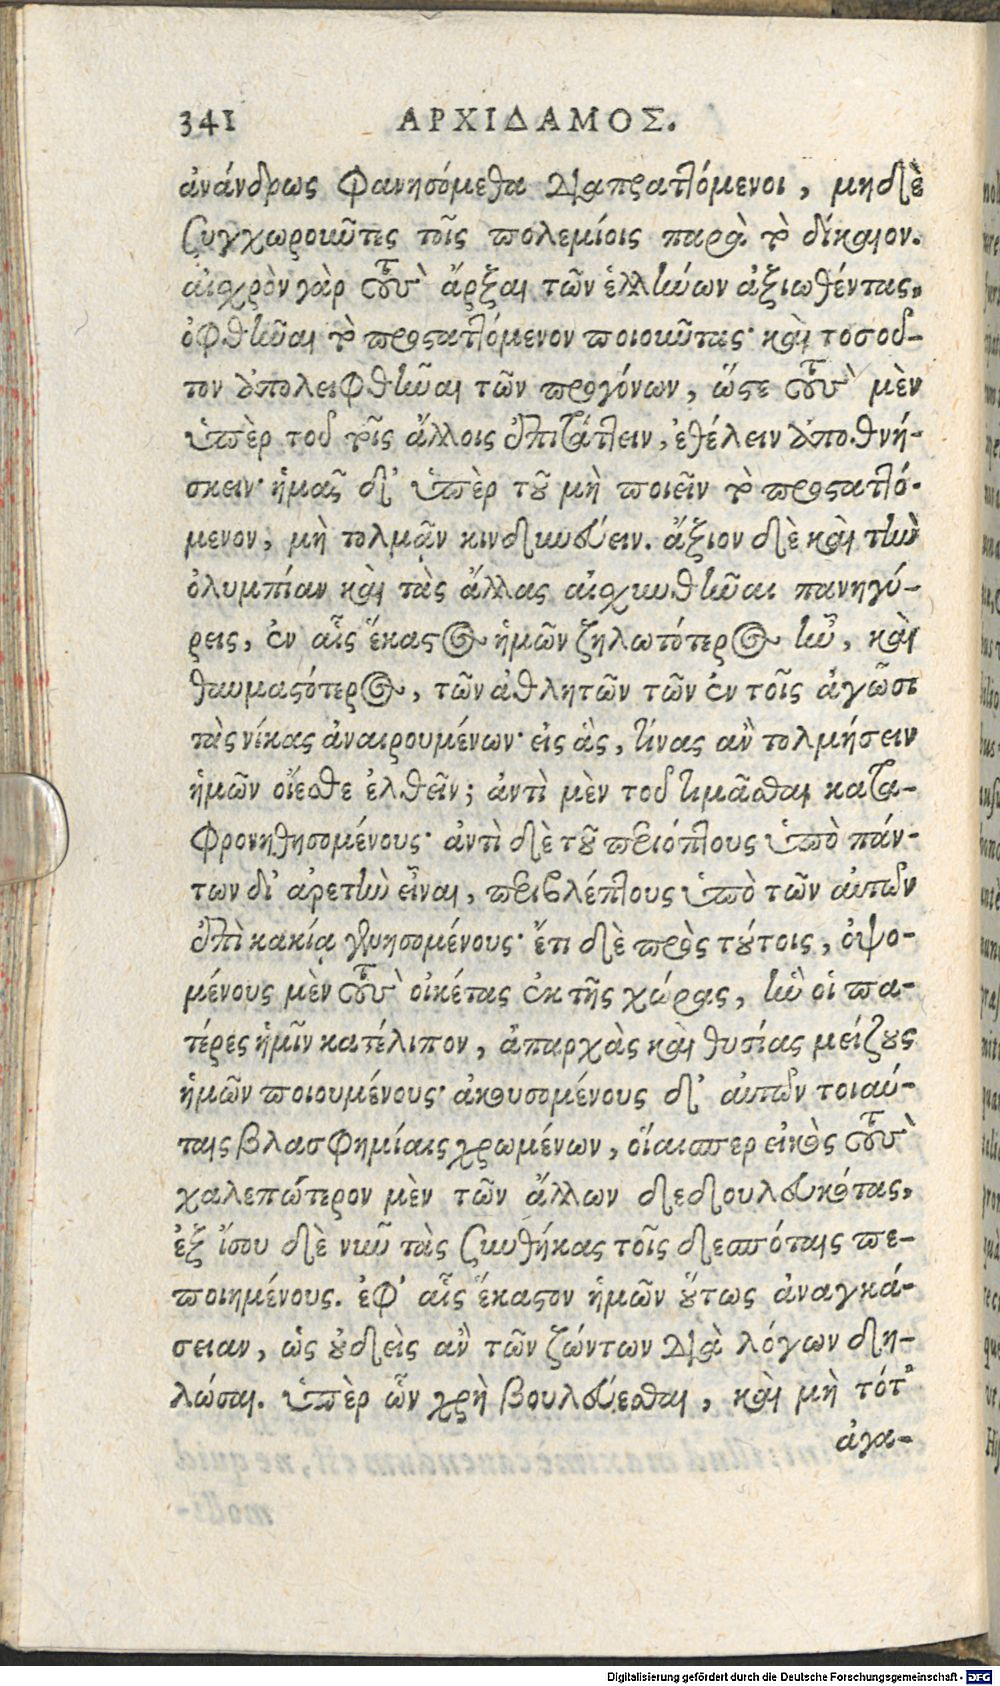 341 ΑΡΧΙΔΑΜΟΣ.
ἀνάνδρως φανησόμεθα διαπραττόμενοι, μηδὲ
συγχωροῦντες τοῖς πολεμίοις παρὰ τὸ δίκαιον.
αἰσχρὸν γὰρ τοὺς ἄρξαι τῶν ἑλλήνων ἀξιωθέντας,
ὀφθῆναι τὸ προσταττόμενον ποιοῦντας· καὶ τοσοῦ-
τον ἀπολειφθῆναι τῶν προγόνων, ὥστε τοὺς μὲν
ὑπὲρ τοῦ τοῖς ἄλλοις ἐπιτάττειν, ἐθέλειν ἀποθνή-
σκειν· ἡμᾶς δ' ὑπὲρ τοῦ μὴ ποιεῖν τὸ προσταττό-
μενον, μὴ τολμᾷν κινδυνεύειν. ἄξιον δὲ καὶ τὴν
ὀλυμπίαν καὶ τὰς ἄλλας αἰσχυνθῆναι πανηγύ-
ρεις, ἐν αἷς ἕκαστος ἡμῶν ζηλωτότερος ἦν, καὶ
θαυμαστότερος, τῶν ἀθλητῶν τῶν ἐν τοῖς ἀγῶσι
τὰς νίκας ἀναιρουμένων· εἰς ἃς, τίνας ἂν τολμήσειν
ἡμῶν οἴεσθε ἐλθεῖν; ἀντὶ μὲν τοῦ τιμᾶσθαι κατα-
φρονηθησομένους· ἀντὶ δὲ τοῦ περιόπτους ὑπὸ πάν-
των δι' ἀρετὴν εἶναι, περιβλέπτους ὑπὸ τῶν αὐτῶν
ἐπὶ κακίᾳ γενησομένους· ἔτι δὲ πρὸς τούτοις, ὀψο-
μένους μὲν τοὺς οἰκέτας ἐκ τῆς χώρας, ἣν οἱ πα-
τέρες ἡμῖν κατέλιπον, ἀπαρχὰς καὶ θυσίας μείζους
ἡμῶν ποιουμένους· ἀκουσομένους δ' αὐτῶν τοιαύ-
ταις βλασφημίαις χρωμένων, οἵαισπερ εἰκὸς τοὺς
χαλεπώτερον μὲν τῶν ἄλλων δεδουλευκότας,
ἐξ ἴσου δὲ νῦν τὰς συνθήκας τοῖς δεσπόταις πε-
ποιημένους. ἐφ' αἷς ἕκαστον ἡμῶν οὕτως ἀναγκά-
σειαν, ὡς οὐδεὶς ἂν τῶν ζώντων διὰ λόγων δη-
λώσαι. ὑπὲρ ὧν χρὴ βουλεύεσθαι, καὶ μὴ τότ'
ἀγα-
Digitalisierung gefördert durch die Deutsche Forschungsgemeinschaft - DFG